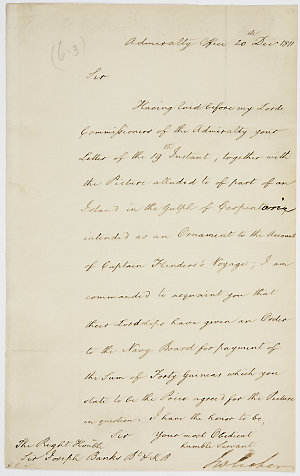 (6-3)
Admiralty Office 20th Decr 1811
Sir
Having laid before my Lords
Commissioners of the Admiralty your
Letter of the 19th Instant, together with
the Picture alluded to of part of an
Island in the Gulph of Carpentaria
intended as an Ornament to the Account
of Captain Flinders's Voyage; I am
commanded to acquaint you that
their Lordships have given an Order
to the Navy Board for payment of
the Sum of Forty Guineas which you
state to be the Price agreed for the Picture
in question. I have the honor to be,
Sir
Your most Obedient
humble Servant
The Right Honble
Sir Joseph Banks Bt & K.B.